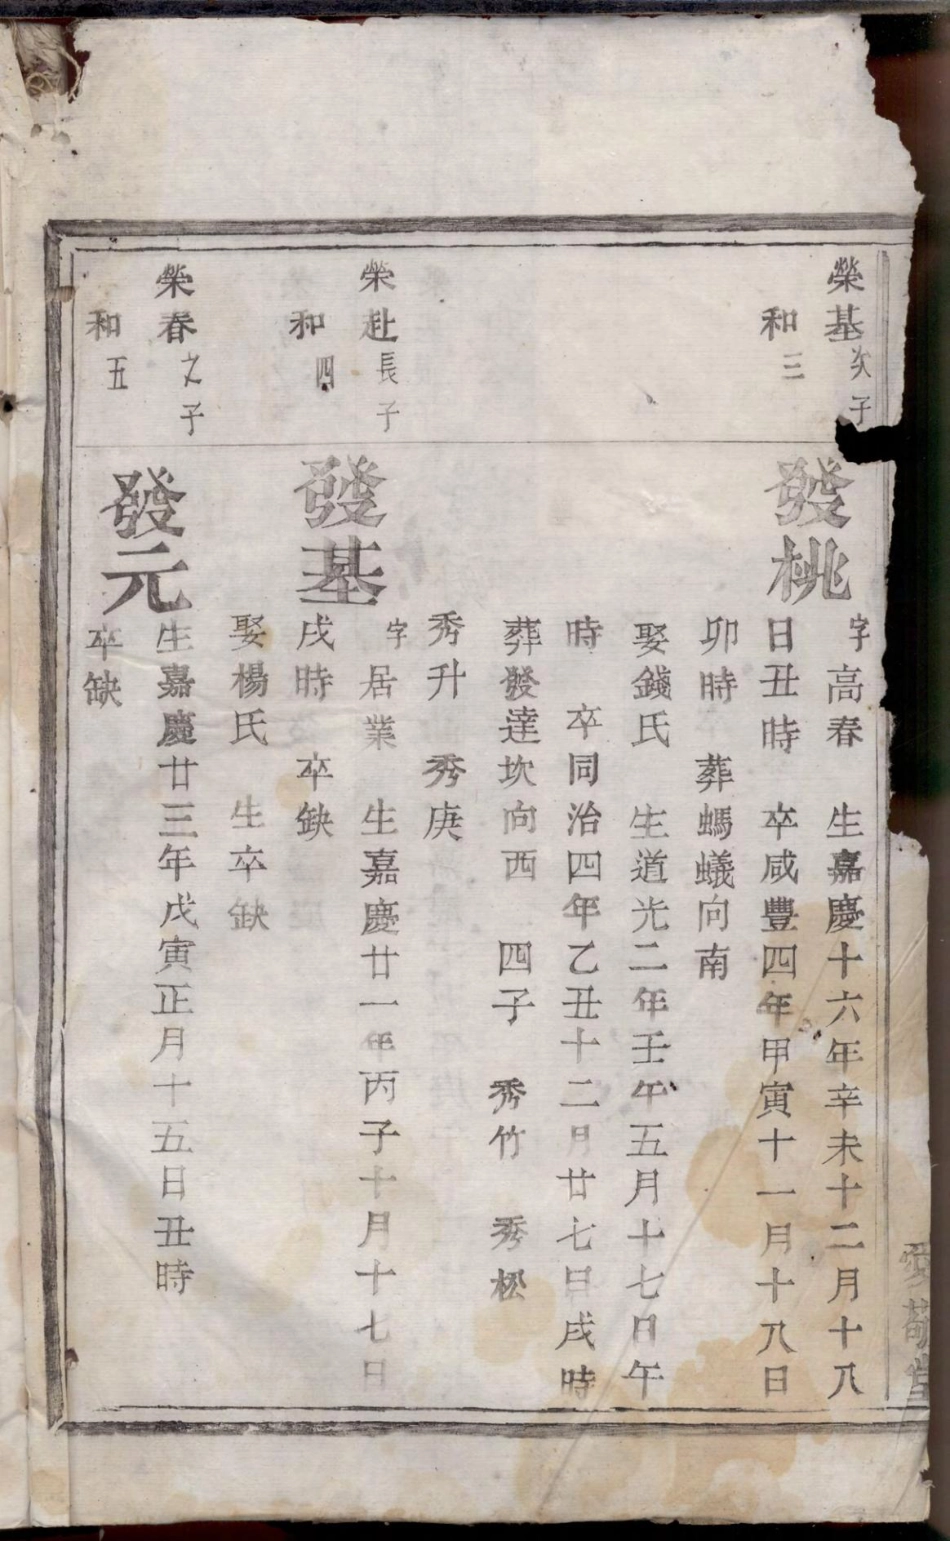 榮基次子
和三
發桃
字高春　生嘉慶十六年辛未十二月十八
日丑時　卒咸豐四年甲寅十一月十八日
卯時　葬螞蟻向南
娶錢氏　生道光二年壬午五月十七日午
時　卒同治四年乙丑十二月廿七日戌時
葬發達坎向西　四子　秀竹　秀松
秀升　秀庚
榮赴長子
和四
發基
字居業　生嘉慶廿一年丙子十月十七日
戌時　卒缺
娶楊氏　生卒缺
榮春之子
和五
發元
生嘉慶廿三年戊寅正月十五日丑時
卒缺
愛敬堂